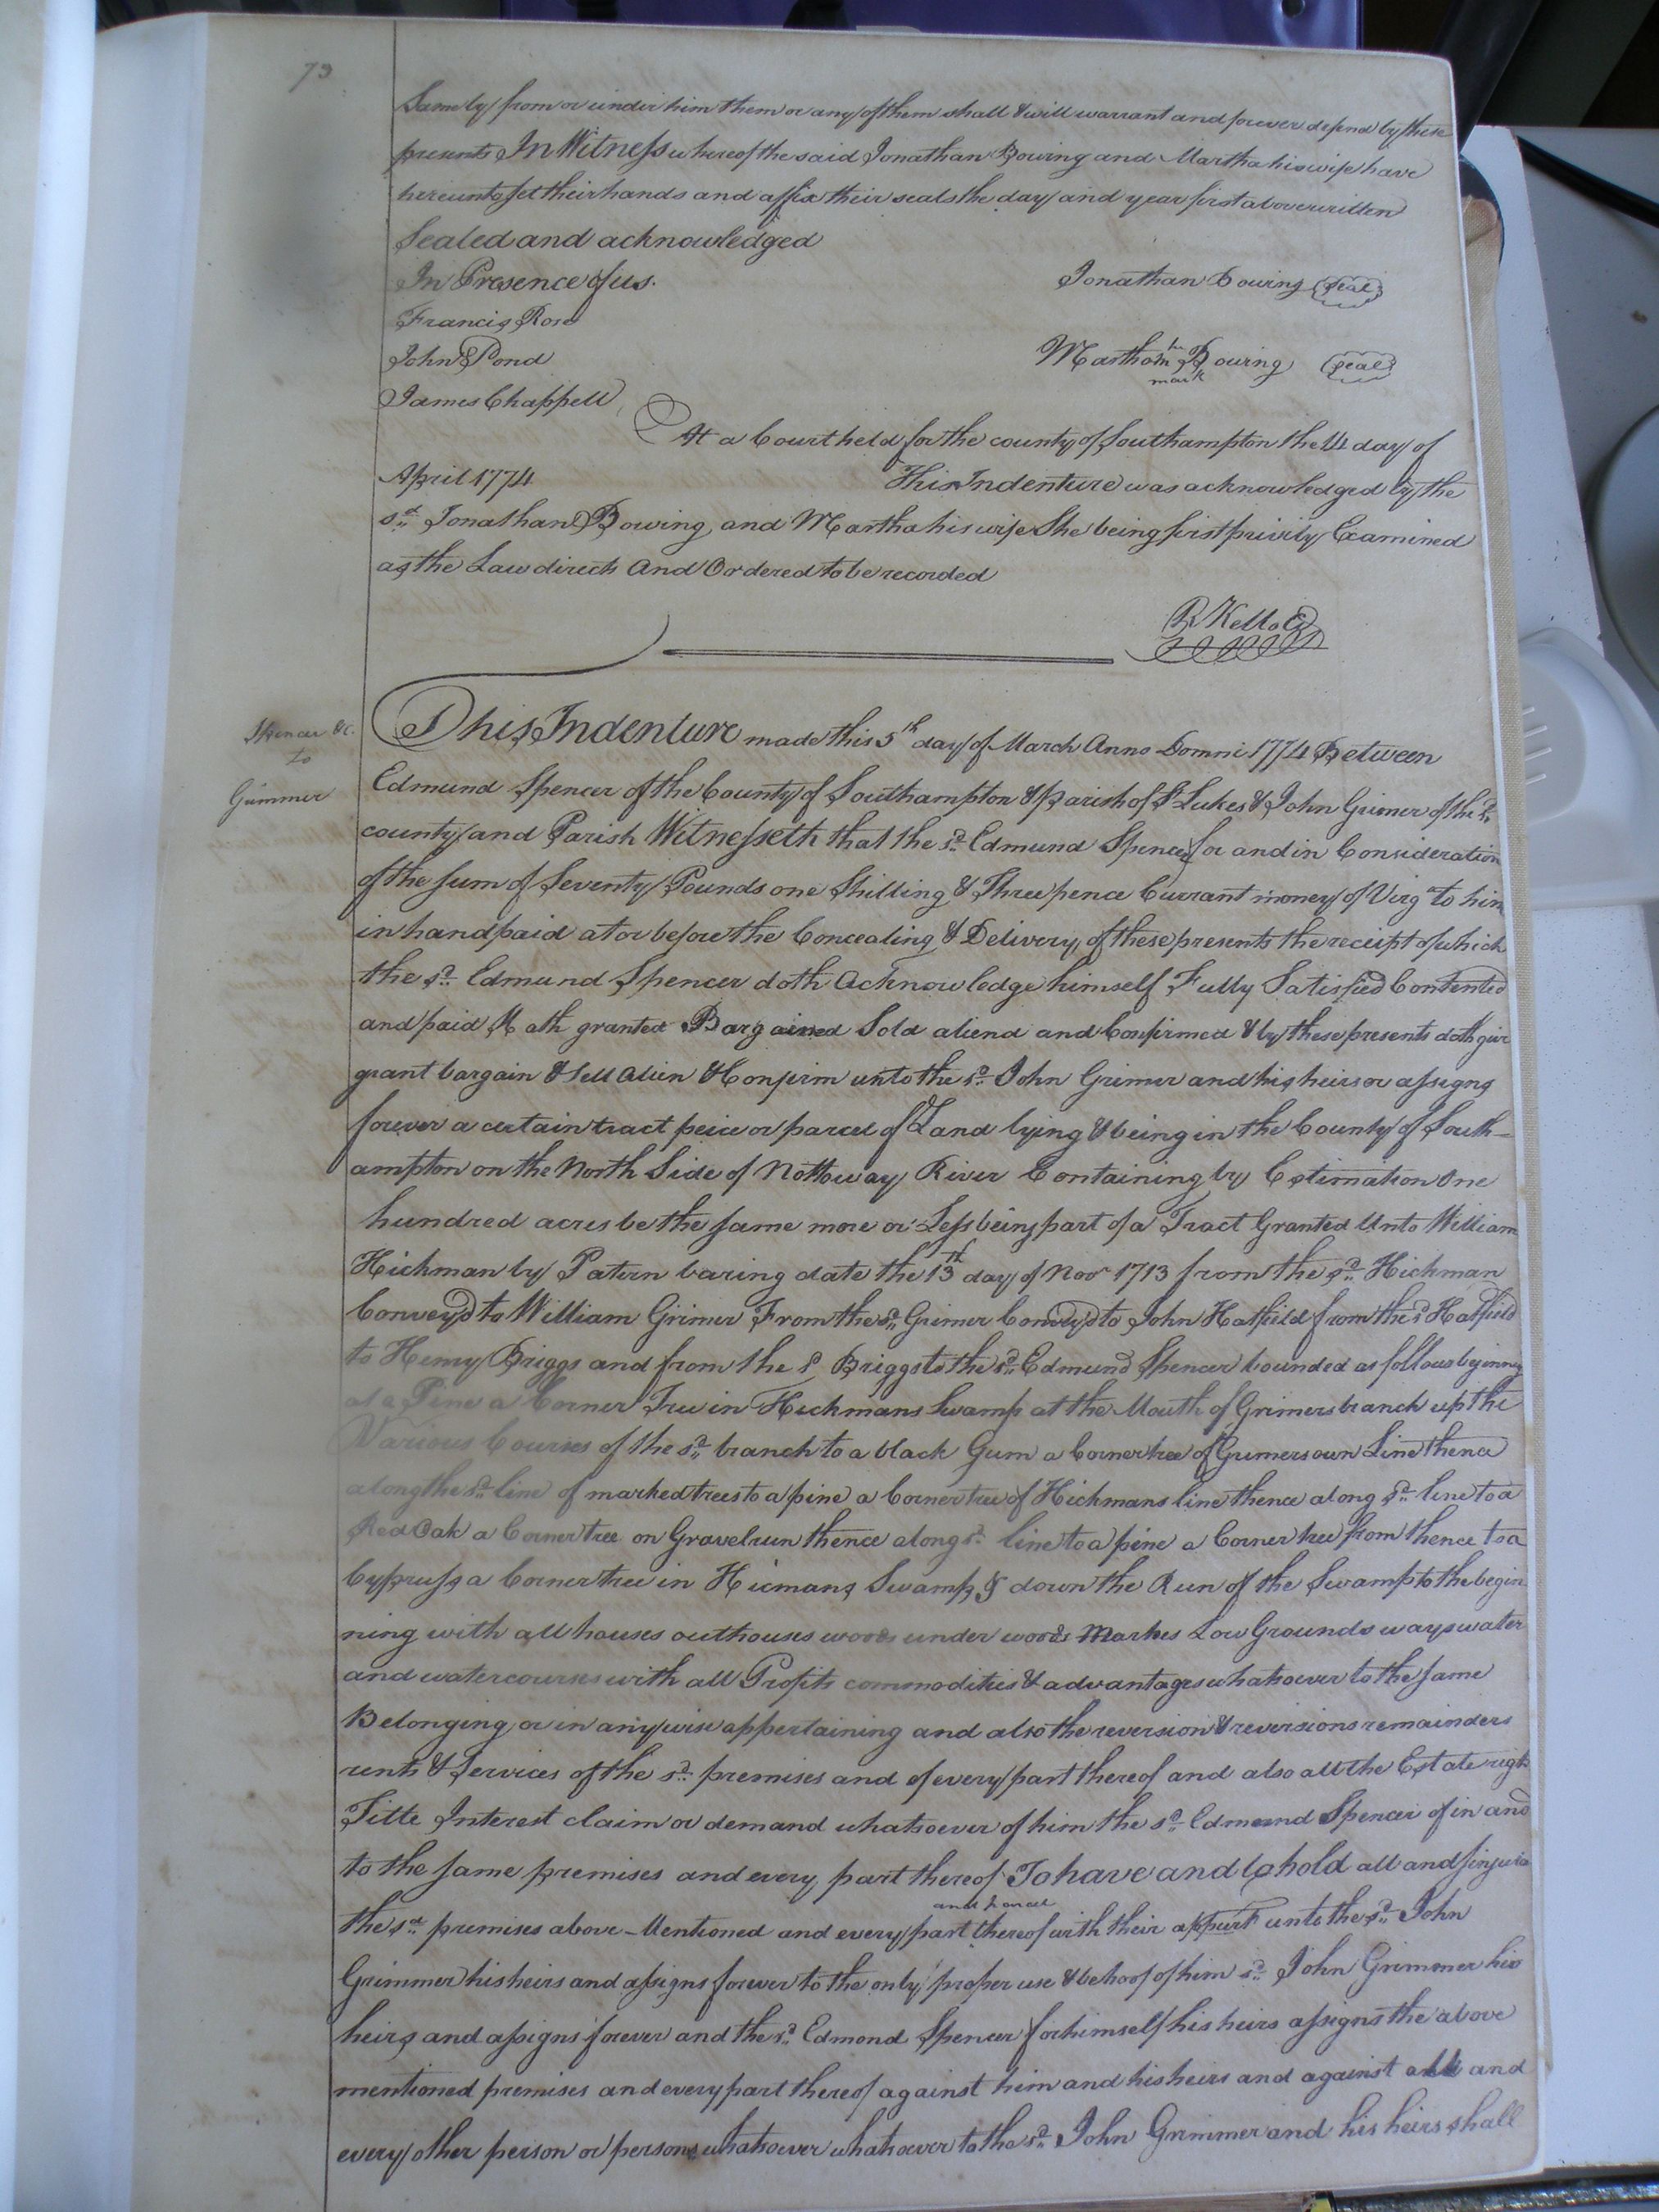 73
Same by from or under him them or any of them shall & will warrant and forever defend by these
presents In Witness whereof the said Jonathan Bowing and Martha his wife have
hereunto set their hands and affix their seals the day and year first above written
Sealed and acknowledged
In Presence of us.
Jonathan Bowing (seal)
Francis Rose
John Pond
Martha her Bowing (seal)
mark
James Chappell
At a Court held for the county of Southampton the 14 day of
April 1774 This Indenture was acknowledged by the
sd. Jonathan Bowing and Martha his wife She being first privily Examined
as the Law directs And Ordered to be recorded
R Kello
Spencer &c.
to
Grimmer
This Indenture made this 5th day of March Anno Domni 1774 Between
Edmund Spencer of the County of Southampton & Parish of St Lukes & John Grimer of the sd.
county and Parish Witnesseth that the sd. Edmund Spencer for and in Consideration
of the sum of Seventy Pounds one Shilling & Three pence Currant money of Virga to him
in hand paid at or before the Concealing & Delivery of these presents the receipt of which
the sd. Edmund Spencer doth Acknowledge himself Fully Satisfied Contented
and paid Hath granted Bargained Sold aliend and Confirmed & by these presents doth give
grant bargain & sell Alien & Confirm unto the sd. John Grimer and his heirs or assigns
forever a certain tract peice or parcel of Land lying & being in the County of South-
ampton on the North Side of Nottoway River Containing by Estimation One
hundred acres be the same more or Less being part of a Tract Granted Unto William
Hickman by Patern baring date the 13th day of Novr 1713 from the sd. Hickman
Conveyd to William Grimer From the sd. Grimer Convey'd to John Hatfield from the sd Hatfield
to Henry Briggs and from the sd Briggs to the sd. Edmund Spencer bounded as follows beginning
at a Pine a Corner Tree in Heckmans Swamp at the Mouth of Grimers branch up the
Various Courses of the sd. branch to a black Gum a Corner tree of Grimers own Line thence
along the sd. line of marked trees to a pine a Corner tree of Hickmans line thence along sd. line to a
Red Oak a Corner tree on Gravel run thence along sd. line to a pine a Corner tree from thence to a
Cypruss a Corner tree in Hicmans Swamp & down the Run of the Swamp to the begin
ning with all houses outhouses woods under woods Marhes Low Grounds ways water
and water courses with all Profits commodities & advantages whatsoever to the same
Belonging or in any wise appertaining and also the reversion & reversions remainders
rents & Services of the sd. premises and of every part thereof and also all the Estate right
Title Interest claim or demand whatsoever of him the sd. Edmund Spencer of in and
to the same premises and every part thereof To have and to hold all and singula
the sd. premises above-Mentioned and every part and parcel thereof with their appurt unto the sd. John
Grimmer his heirs and assigns forever to the only proper use & behoof of him sd. John Grimmer his
heirs and assigns forever and the sd. Edmond Spencer for himself his heirs assigns the above
mentioned premises and every part thereof against him and his heirs and against all and
every other person or persons whatsoever whatsoever to the sd. John Grimmer and his heirs shall